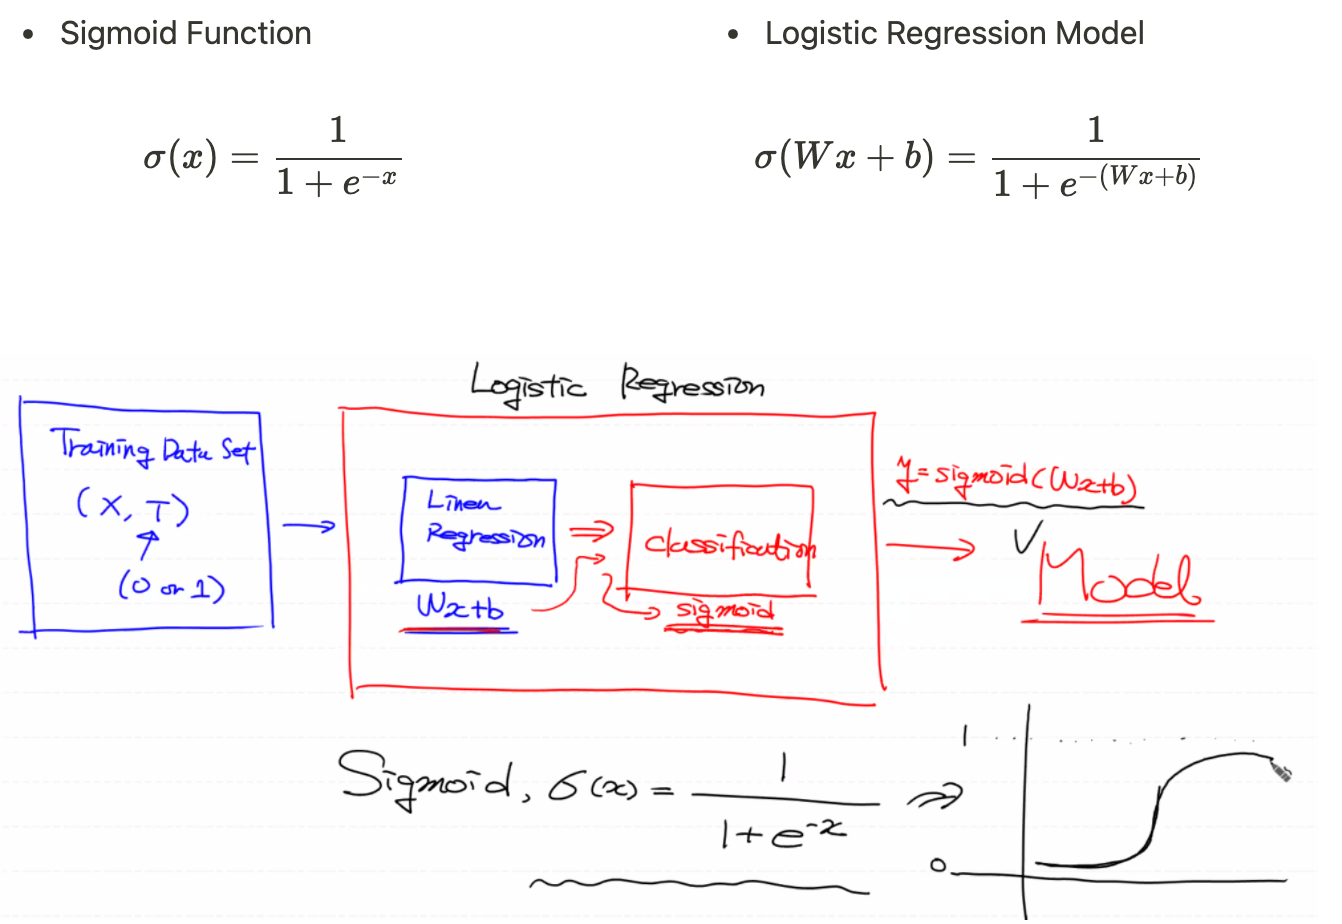 • Sigmoid Function
• Logistic Regression Model
σ(x) = 1 / (1 + e^{-x})
σ(Wx + b) = 1 / (1 + e^{-(Wx+b)})
Logistic Regression
Training Data Set
(X, T)
(0 or 1)
Linear
Regression
Wx+b
classification
sigmoid
y = sigmoid(Wx+b)
Model
Sigmoid, σ(x) = 1 / (1+e^{-x})
1
0